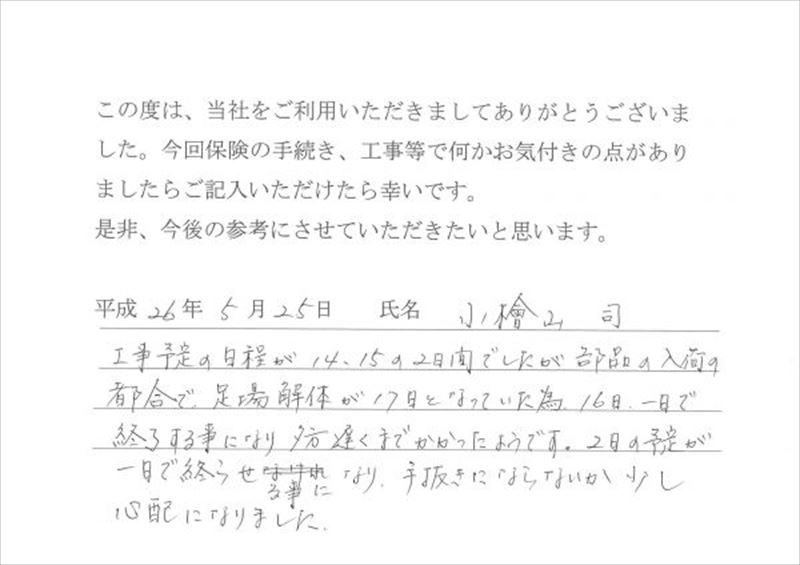 この度は、当社をご利用いただきましてありがとうございま
した。今回保険の手続き、工事等で何かお気付きの点があり
ましたらご記入いただけたら幸いです。
是非、今後の参考にさせていただきたいと思います。
平成 26年 5月 25日 氏名 小檜山 司
工事予定の日程が 14、15の2日間でしたが 部品の入荷の
都合で、足場解体が17日となっていた為、16日、一日で
終了する事になり 夕方遅くまでかかったようです。2日の予定が
一日で終らせ なり、手抜きにならないか 少し
る事に
心配になりました。